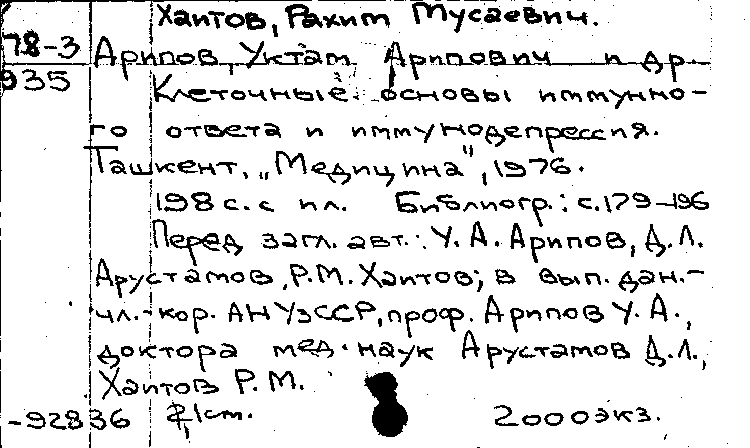 Хаитов, Рахим Мусаевич.
78-3 Арипов, Уктам Арипович и др.
935 Клеточные основы иммунно-
го ответа и иммунодепрессия.
Ташкент, „Медицина", 1976.
198 с. с ил. Библиогр.: с. 179-196
Перед загл. авт.: У. А. Арипов, Д. Л.
Арустамов, Р. М. Хаитов; в вып. дан.-
чл.-кор. АН УзССР, проф. Арипов У. А.,
доктора мед. наук Арустамов Д. Л.,
Хаитов Р. М.
-92836 2000 экз.